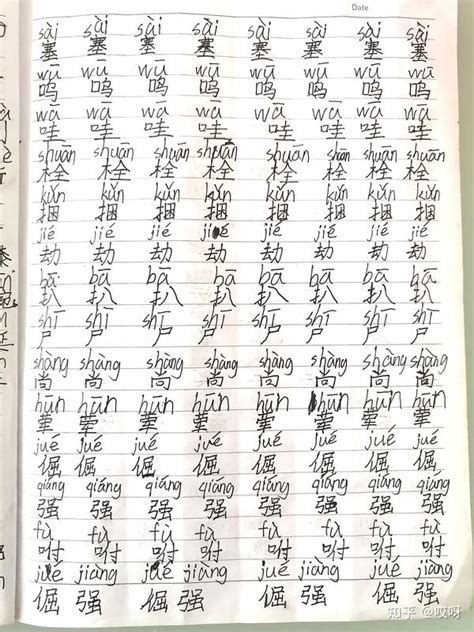 Date
sài sài sài sài sài sài sài sài
塞 塞 塞 塞 塞 塞 塞 塞
wū wū wū wū wū wū wū wū
呜 呜 呜 呜 呜 呜 呜 呜
wā wā wā wā wā wā wā wā
哇 哇 哇 哇 哇 哇 哇 哇
shuān shuān shuān shuān shuān shuān shuān shuān
栓 栓 栓 栓 栓 栓 栓 栓
kǔn kǔn kǔn kǔn kǔn kǔn kǔn kǔn
捆 捆 捆 捆 捆 捆 捆 捆
jié jié jié jié jié jié jié jié
劫 劫 劫 劫 劫 劫 劫 劫
bā bā bā bā bā bā bā bā
扒 扒 扒 扒 扒 扒 扒 扒
shī shī shī shī shī shī shī shī
尸 尸 尸 尸 尸 尸 尸 尸
shàng shàng shàng shàng shàng shàng shàng shàng
尚 尚 尚 尚 尚 尚 尚 尚
hūn hūn hūn hūn hūn hūn hūn hūn
荤 荤 荤 荤 荤 荤 荤 荤
jué jué jué jué jué jué jué jué
倔 倔 倔 倔 倔 倔 倔 倔
qiáng qiáng qiáng qiáng qiáng qiáng qiáng qiáng
强 强 强 强 强 强 强 强
fù fù fù fù fù fù fù fù
咐 咐 咐 咐 咐 咐 咐 咐
jué jiàng jué jiàng jué jiàng jué jiàng
倔 强 倔 强 倔 强 倔 强
知乎 @哎呀